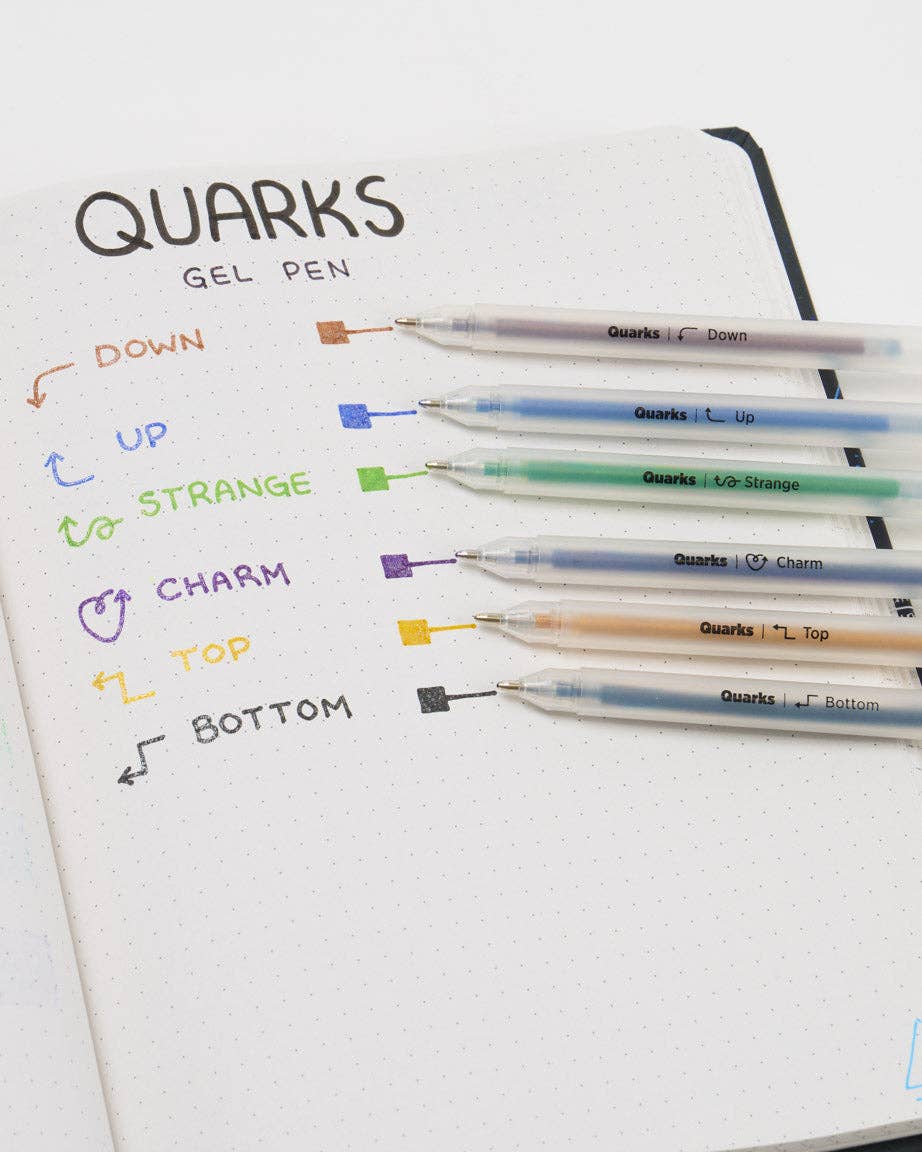 QUARKS
GEL PEN
DOWN
Quarks | Down
UP
Quarks | Up
STRANGE
Quarks | Strange
CHARM
Quarks | Charm
TOP
Quarks | Top
BOTTOM
Quarks | Bottom